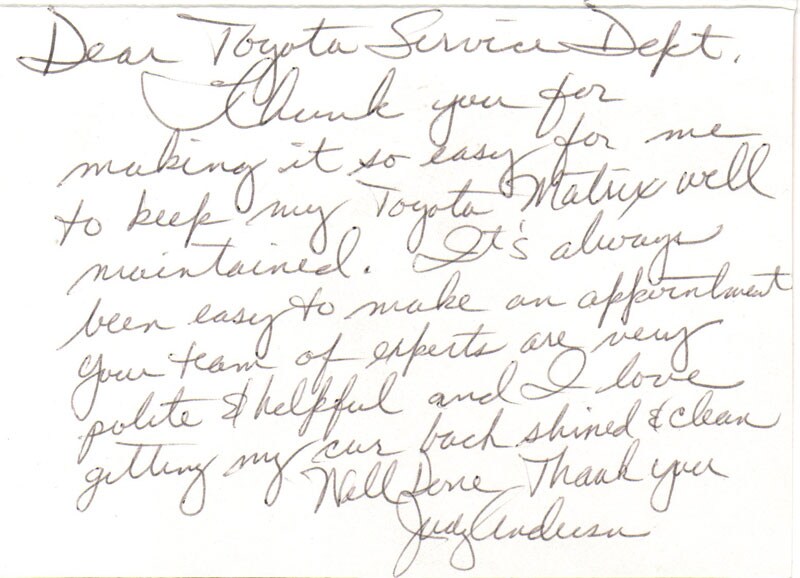 Dear Toyota Service Dept.
Thank you for
making it so easy for me
to keep my Toyota Matrix well
maintained. It's always
been easy to make an appointment
your team of experts are very
polite & helpful and I love
getting my car back shined & clean
Well Done Thank you
Judy Anderson